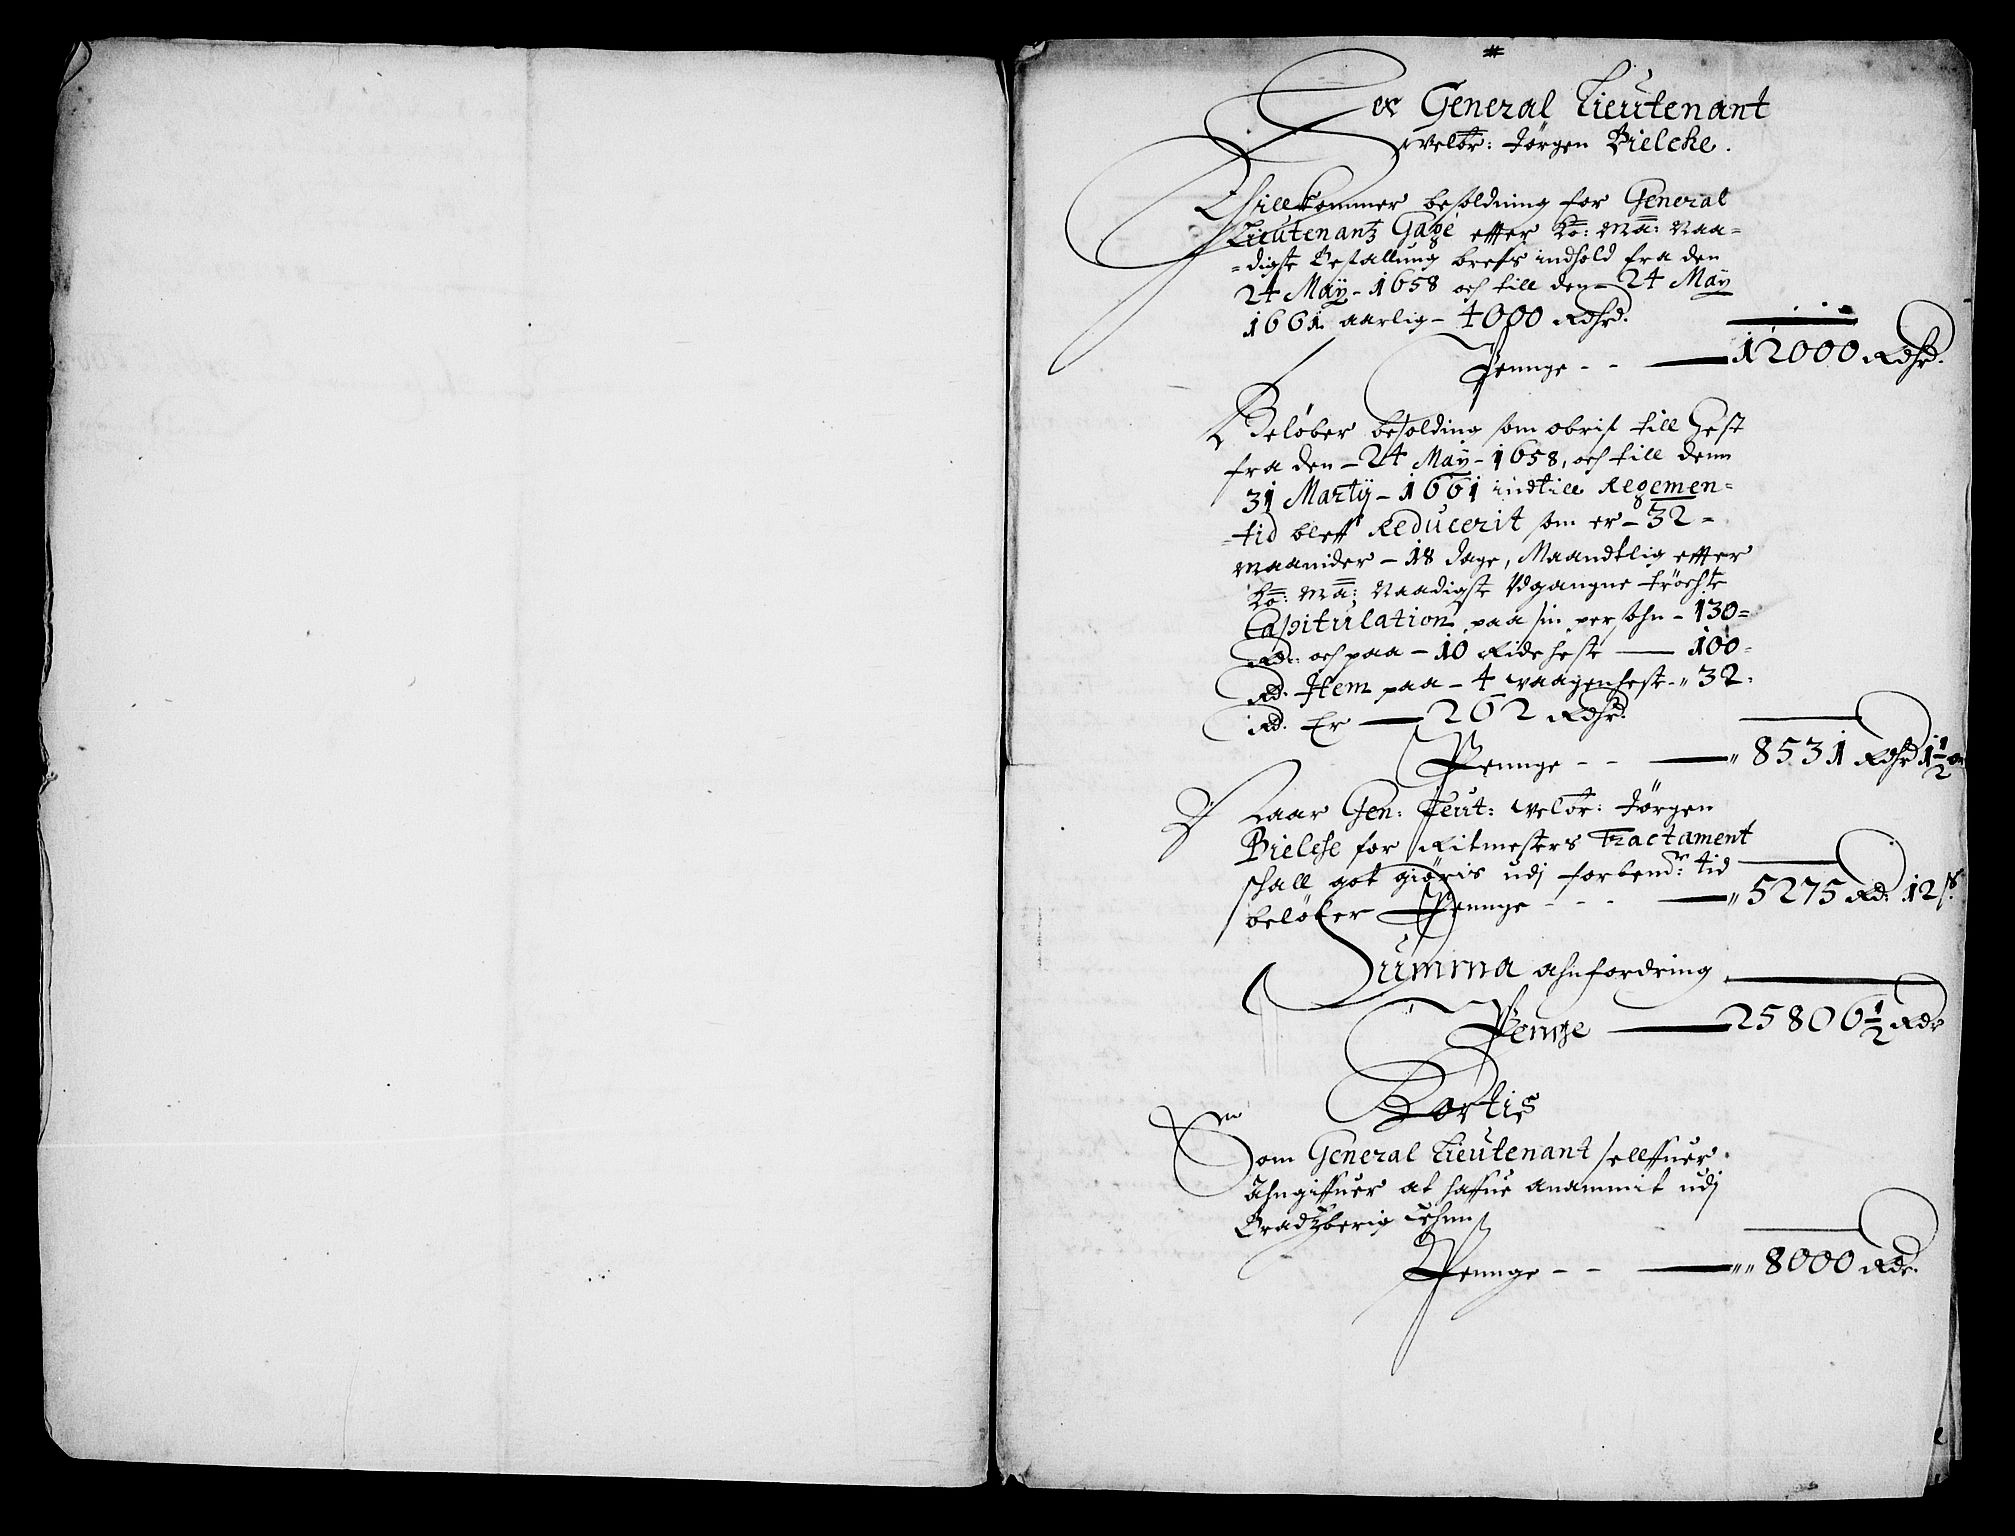 Her General Lieutenant
Velbr: Jørgen Bielcke.
Tillkommer besoldning for General
Lieutenantz Gage effter Ko: Ma: Naa=
=digste Bestallung brefs indhold fra den
24 May - 1658 och till den - 24 May
1661 aarlig - 4000 Rdhr.
Pennge - - 12000 Rdhr.
Beløber besolding som obrist till Hest
fra den - 24 May - 1658, och till denn
31 Marty - 1661 indtill Regemen=
=tid bleff Reducerit som er - 32 =
maanider - 18 dage, Maandtlig effter
Ko: Ma: Naadigste Udgangne trøchte
Capitulation paa sin persohn - 130 =
Rd: och paa - 10 Rideheste — 100 =
Rd. Item paa - 4 vaagenheste - 32.
Rd. Er — 262 Rdhr.
Pennge - - 8531 Rdhr 1 1/2 ort
Naar Gen: Leut: Velbr: Jørgen
Bielche for Ritmesters Tractament
schall got giøris udj forbemr: tid
beløber Pennge - - - 5275 Rd: 12 s.
Summa ahnfordring
Penge — 25806 1/2 Rdr
Kortis
Som General Lieutenant selffuer
Ahngiffuer at haffue anammit udj
Bradtzberig Lehnn
Pennge - - 8000 Rdr.